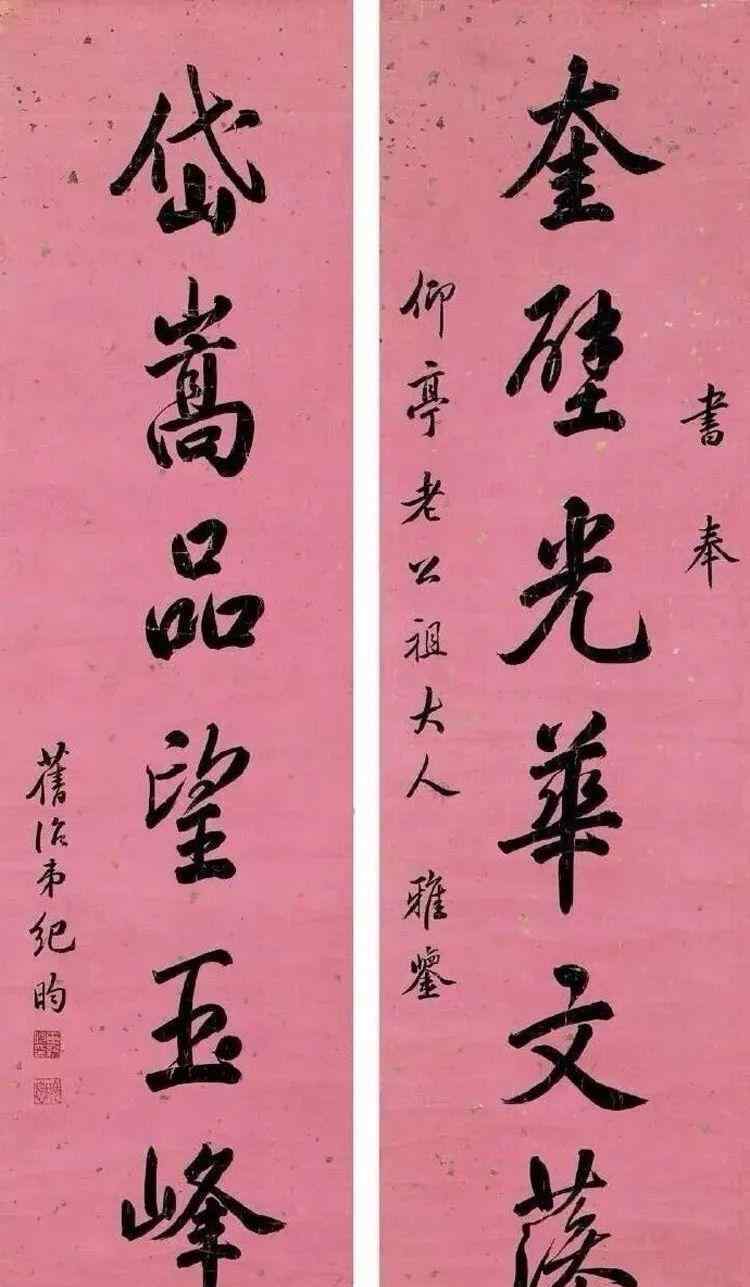 書奉
奎壁光華文藻
仰亭老公祖大人 雅鑒
岱嵩品望玉峰
舊治弟紀昀